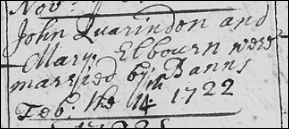 Nov:
John Quarindon and
Mary Elbourn were
married by Banns
Feb: the 14th 1722